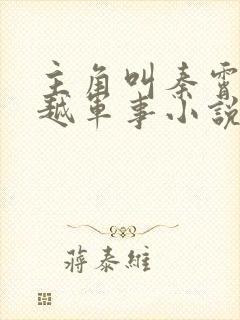 主角叫秦霄
越軍事小說
蔣泰維